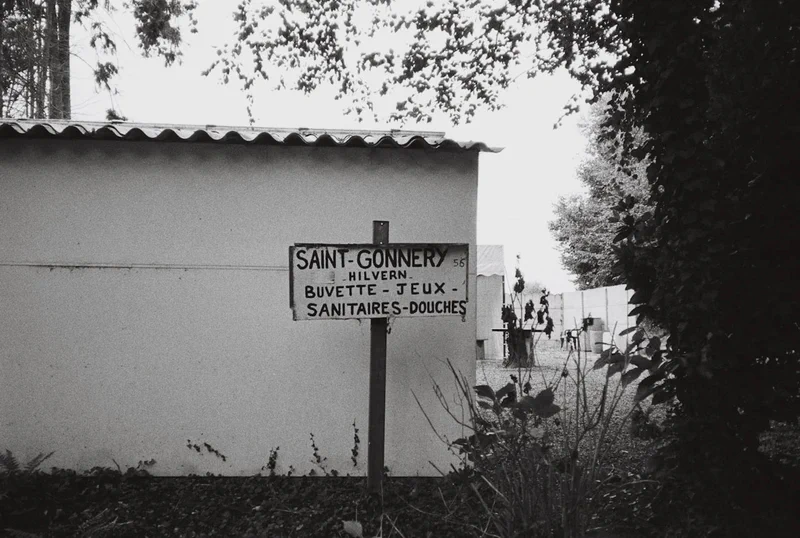 SAINT-GONNERY 56
-HILVERN-
BUVETTE - JEUX -
SANITAIRES-DOUCHES